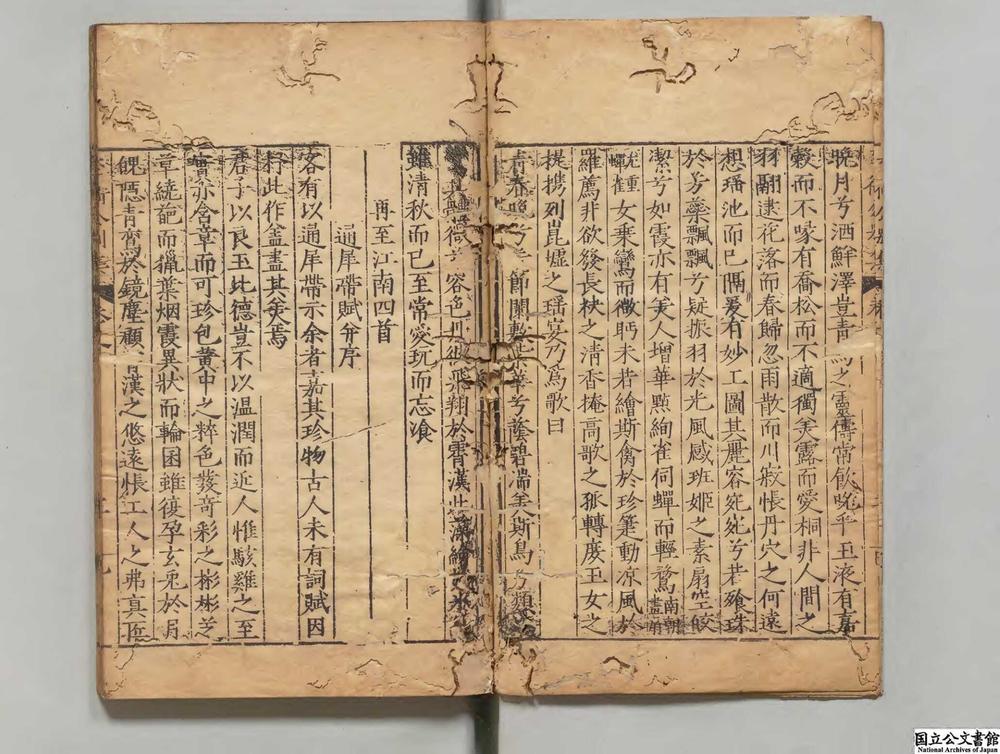 晚月兮洒鮮澤豈青鳥之靈儔常飲吮乎玉液有嘉
穀而不啄有喬松而不適獨美露而愛桐非人間之
羽翮逮花落而春歸忽雨散而川寂悵丹穴之何遠
想瑤池而已隔爰有妙工圖其麗容宛宛兮若餐珠
於芳蘂飄飄兮疑振羽於光風感班姬之素扇空皎
潔兮如霞亦有美人增華點絢雀伺蟬而輕鶩南朝畫扇
蟬雀女乘鸞而微眄未若繪斯禽於珍箑動凉風於
羅薦非欲發長袂之清香掩高歌之孤轉庶玉女之
提攜列崑墟之瑤宴乃爲歌曰
青春晚兮 節闌敷 華兮蔭碧湍美斯鳥兮類
容色 飛翔於霄漢
雖清秋而已至常愛玩而忘飡
再至江南四首
通犀帶賦并序
客有以通犀帶示余者嘉其珍物古人未有詞賦因
抒此作盖盡其美焉
君子以良玉比德豈不以溫潤而近人惟駭雞之至
寶亦含章而可珍包黃中之粹色發奇彩之彬彬芝
草繞葩而獵葉烟霞異狀而輪囷雖復孕玄兎於月
魄隱青鸞於鏡塵顧 漢之悠遠悵工人之弗真
国立公文書館
National Archives of Japan